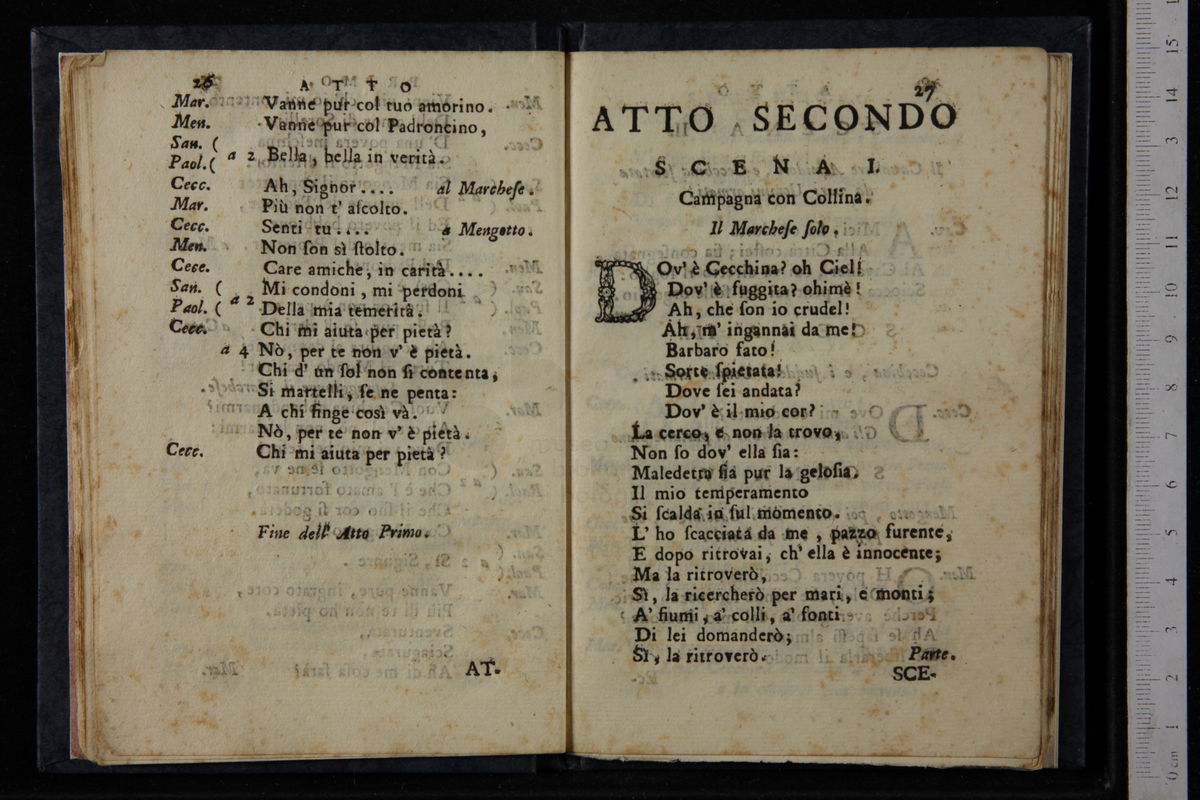 26
A T T O
Mar. Vanne pur col tuo amorino.
Men. Vanne pur col Padroncino,
San. (
Paol. ( a 2 Bella, bella in verità.
Cecc. Ah, Signor.... al Marcheſe.
Mar. Più non t' aſcolto.
Cecc. Senti tu.... a Mengotto.
Men. Non ſon sì ſtolto.
Cecc. Care amiche, in carità....
San. ( Mi condoni, mi perdoni
Paol. ( a 2 Della mia temerità.
Cecc. Chi mi aiuta per pietà?
a 4 Nò, per te non v' è pietà.
Chi d' un ſol non ſi contenta,
Si martelli, ſe ne penta:
A chi finge così và.
Nò, per te non v' è pietà.
Cecc. Chi mi aiuta per pietà?
Fine dell' Atto Primo.
AT-
27
ATTO SECONDO
S C E N A I.
Campagna con Collina.
Il Marcheſe ſolo.
DOv' è Cecchina? oh Ciel!
Dov' è fuggita? ohimè!
Ah, che ſon io crudel!
Ah, m' ingannai da me!
Barbaro fato!
Sorte ſpietata!
Dove ſei andata?
Dov' è il mio cor?
La cerco, e non la trovo,
Non ſo dov' ella ſia:
Maledetta ſia pur la geloſia.
Il mio temperamento
Si ſcalda in ſul momento.
L' ho ſcacciata da me, pazzo furente,
E dopo ritrovai, ch' ella è innocente;
Ma la ritroverò,
Sì, la ricercherò per mari, e monti;
A' fiumi, a' colli, a' fonti
Di lei domanderò;
Sì, la ritroverò. Parte.
SCE-
15
14
13
12
11
10
9
8
7
6
5
4
3
2
1
0 cm